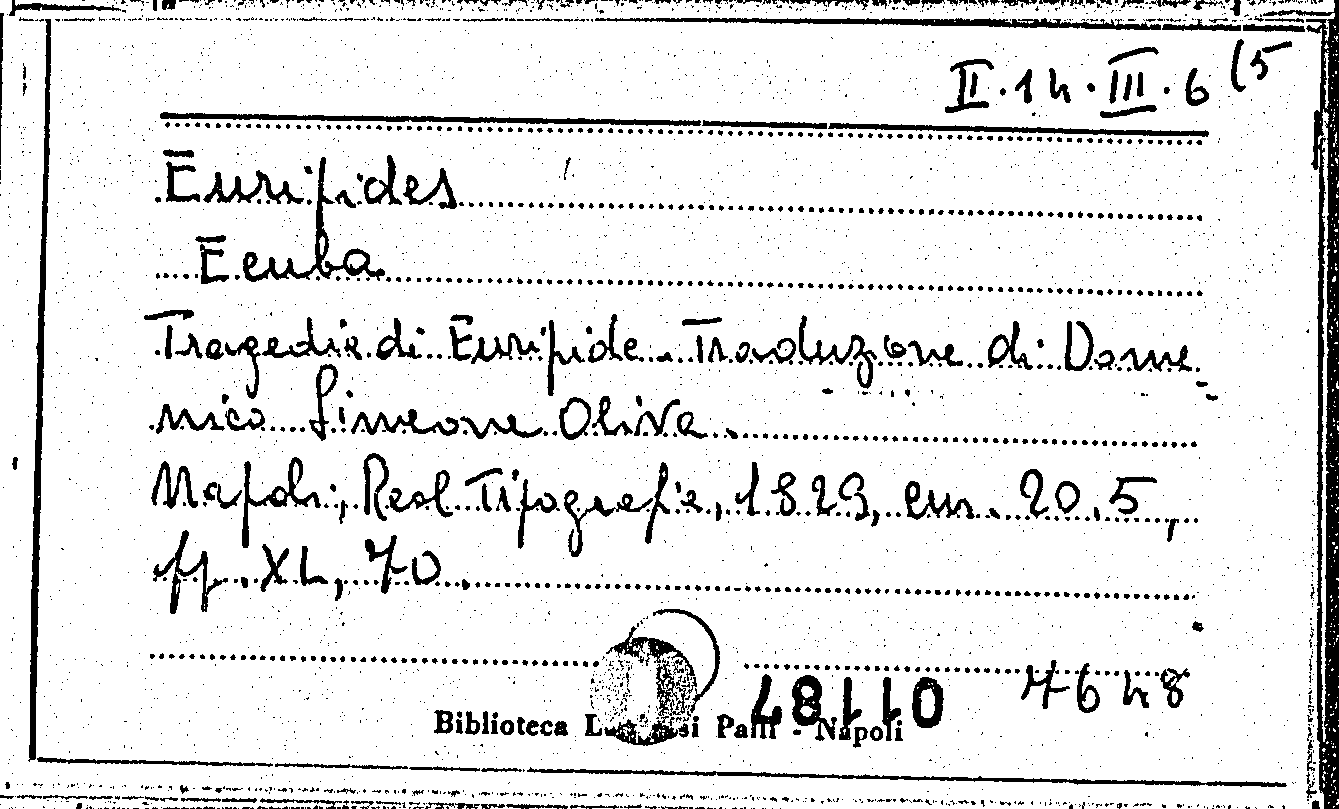 II.14.III.6 (5
Euripides
Ecuba
Tragedia di Euripide. Traduzione di Dome
nico Simeone Oliva.
Napoli, Real Tipografia, 1829, cm. 20.5,
pp. XL, 70.
48110 7648
Biblioteca Palli - Napoli